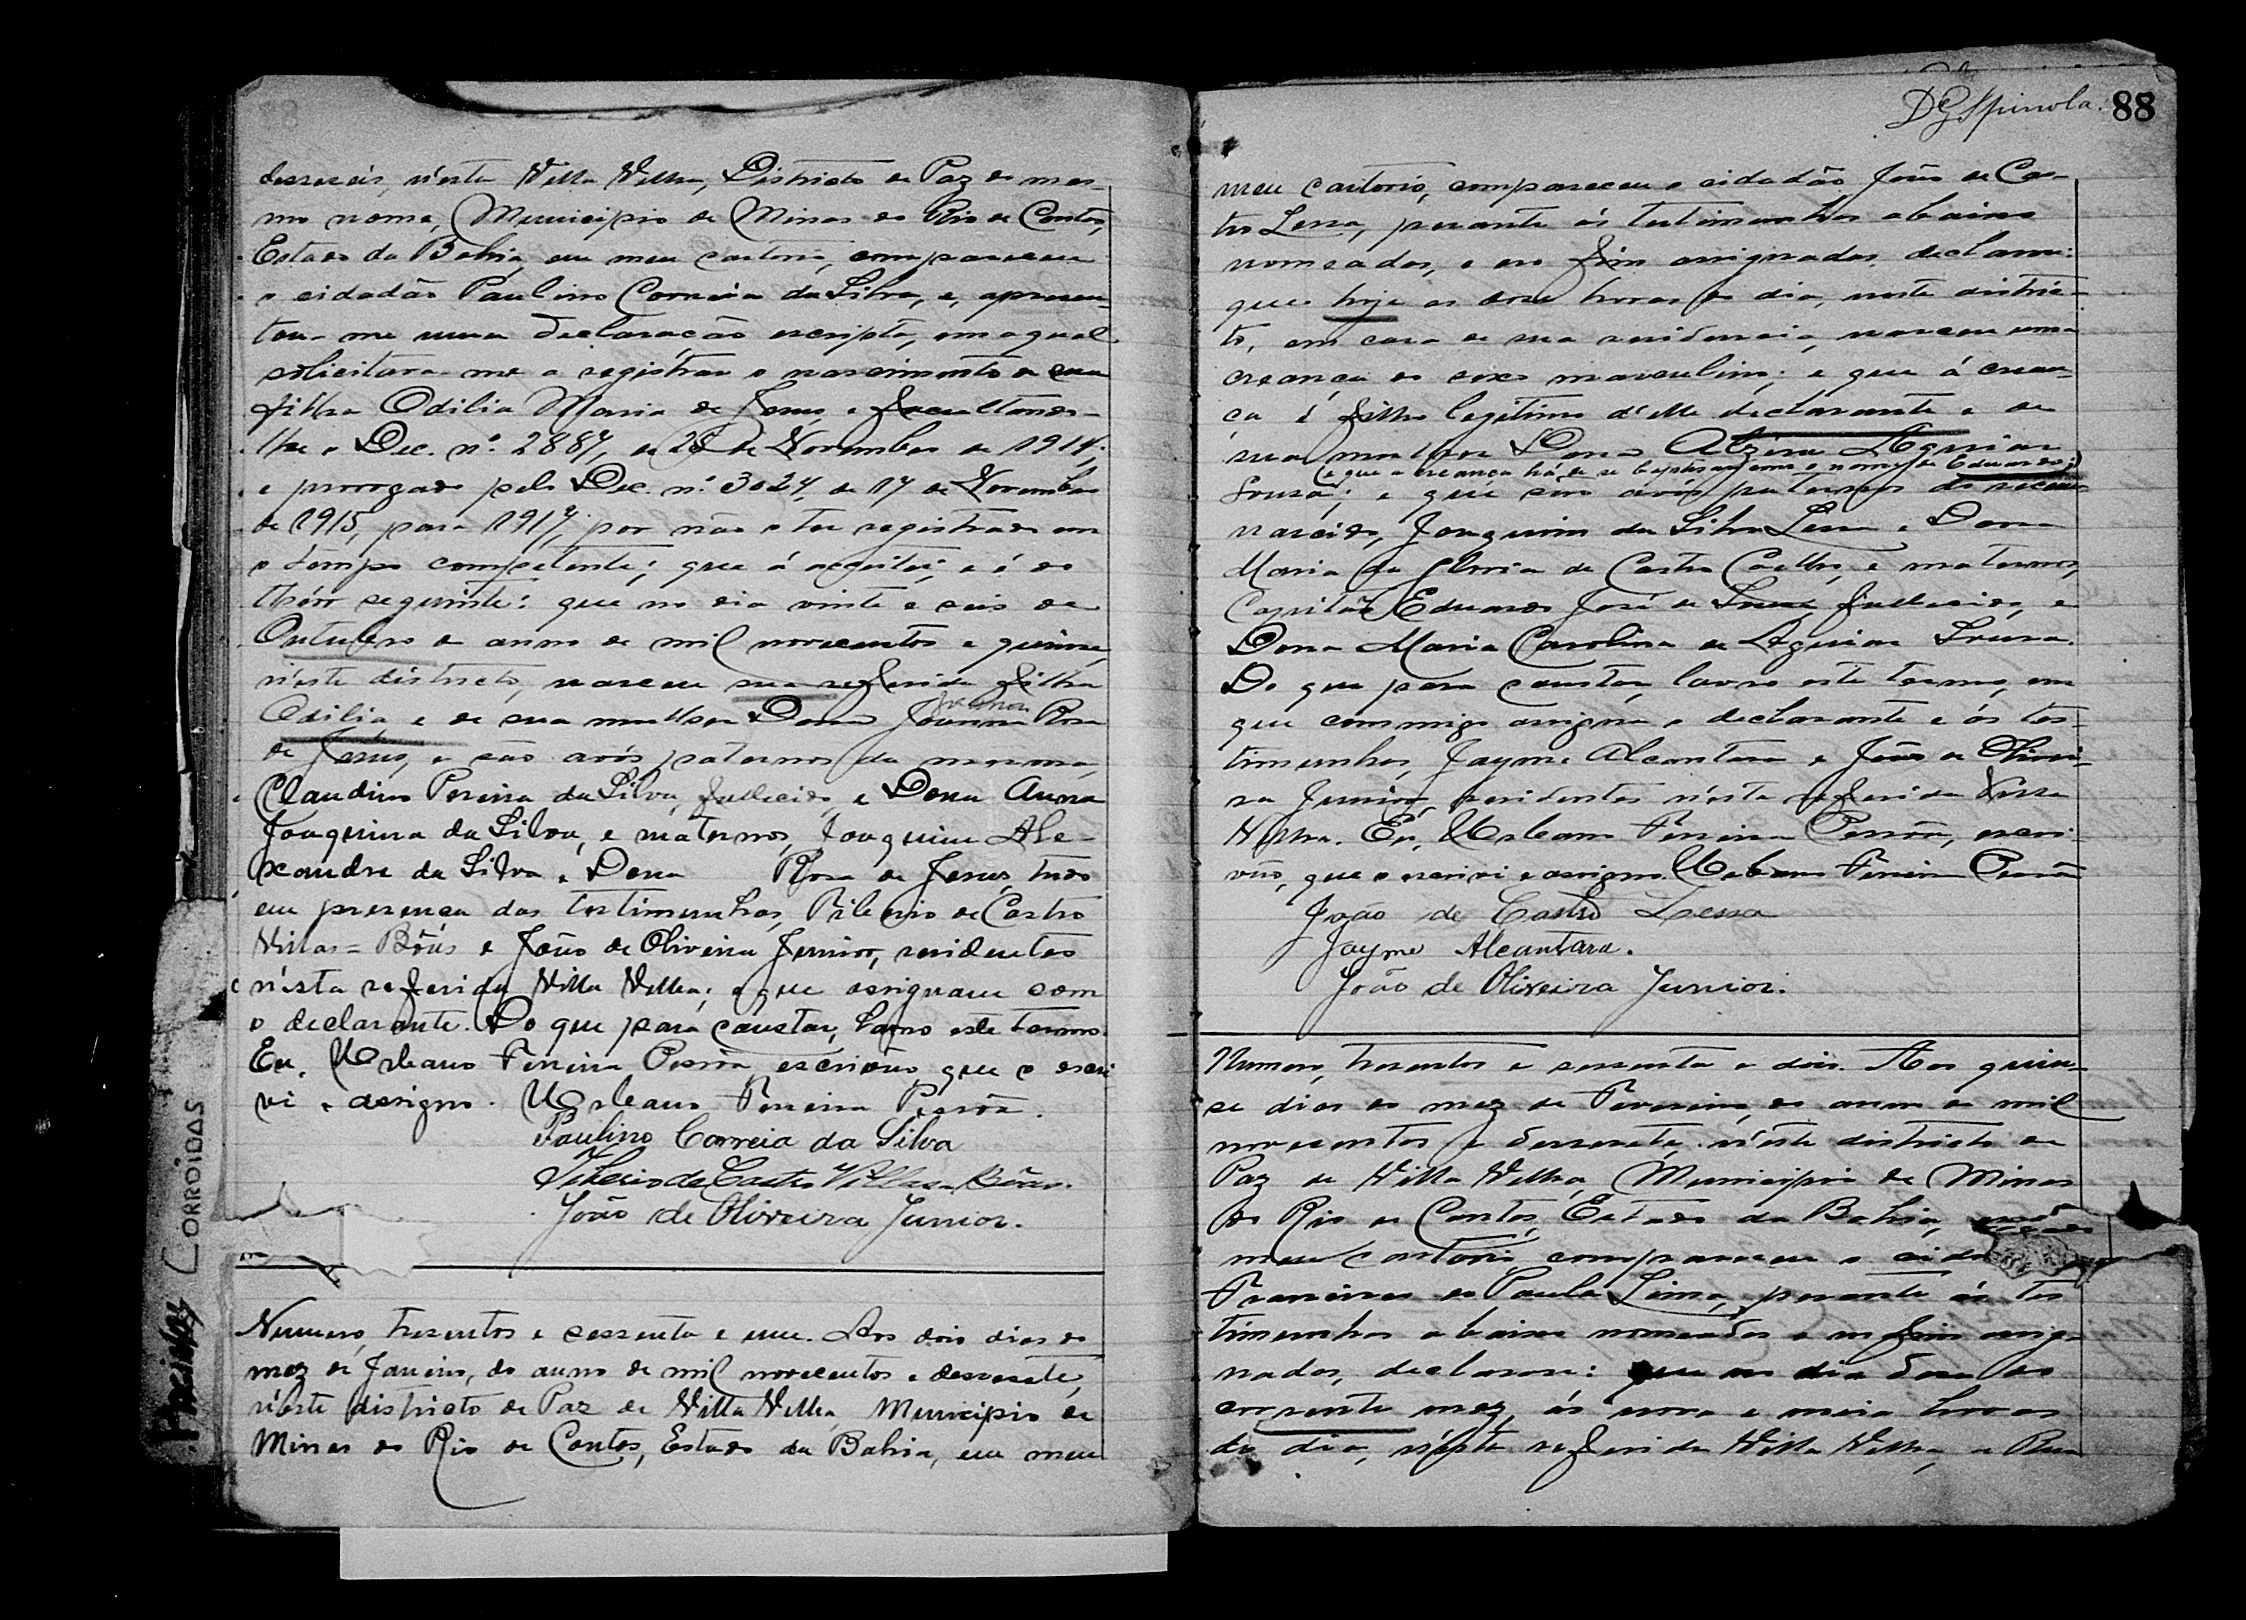 desseseis, n'esta Villa Velha, Districto de Paz do mes-
mo nome, Municipio de Minas do Rio de Contas,
Estado da Bahia, em meu cartorio, compareceu
o cidadão Paulino Correia da Silva, e, apresen-
tou-me uma declaração escripta, em a qual
solicitara-me a registrar o nascimento de sua
filha Odilia Maria de Jesus, e facultando-
lhe o Dec. nº 2887, de 25 de Novembro de 1914,
e prorogado pelo Dec. nº 3024, de 17 de Novembro
de 1915, para 1917, por não o ter registrado em
o tempo competente; que á acceitei; e é do
theor seguinte: que no dia vinte e seis de
Outubro do anno de mil novecentos e quinze,
n'este districto, nasceu sua referida filha
Odilia e de sua mulher Dona Joanna Rosa
de Jesus, e são avós paternos da mesma,
Claudino Pereira da Silva, fallecido, e Dona Anna
Joaquina da Silva, e maternos, Joaquim Ale-
xandre da Silva e Dona Rosa de Jesus, tudo
em presença das testimunhas, Tiberio de Castro
Villas=Bôas e João de Oliveira Junior, residentes
n'esta referida Villa Velha; e que assignam com
o declarante. Do que para constar, lavro este termo.
Eu, Urbano Ferreira Pessôa, escrivão que o escre
vi e assigno. Urbano Ferreira Pessôa.
Paulino Correia da Silva
Tiberio de Castro Villas-Bôas.
João de Oliveira Junior.
CORROIDAS
Numero, tresentos e sessenta e um. Aos dois dias do
mez de Janeiro, do anno de mil novecentos e desesete,
n'este districto de Paz de Villa Velha, Municipio de
Minas do Rio de Contas, Estado da Bahia, em meu
Spinola. 88
meu cartorio, compareceu o cidadão João de Cas-
tro Lessa, perante ás testimunhas abaixo
nomeadas, e no fim assignadas, declarou:
que hoje as dose horas do dia, neste distric-
to, em casa de sua residencia, nasceu uma
creança do sexo masculino; e que á crean-
ça é filho legitimo d'elle declarante e de
sua mulher Dona Alzira Aguiar
(e que a creança há de se baptisar com o nome de Eduardo;)
Sousa; e que são avós paternos do recem-
nascido, Joaquim da Silva Lessa e Dona
Maria da Gloria de Castro Coelho, e maternos,
Capitão Eduardo José de Sousa, fallecido, e
Dona Maria Carolina de Aguiar Sousa.
Do que para constar, lavro este termo, em
que commigo assigna o declarante e ás tes-
timunhas, Jayme Alcantara e João de Olivei-
ra Junior, residentes n'esta referida Villa
Velha. Eu, Urbano Ferreira Pessôa, escri-
vão, que o escrevi e assigno. Urbano Ferreira Pessôa
João de Castro Lessa
Jayme Alcantara.
João de Oliveira Junior.
Numero, tresentos e sessenta e dois. Aos quin-
se dias do mez de Fevereiro, do anno de mil
novecentos e desesete, n'este districto de
Paz de Villa Velha, Municipio de Minas
do Rio de Contas, Estado da Bahia,
meu cartorio, compareceu o cida
Francisco de Paula Lima, perante ás tes
timunhas abaixo nomeadas e no fim assig-
nadas, declarou: que no dia dose do
corrente mez, ás nove e meia horas
do dia, n'esta referida Villa Velha, a Rua